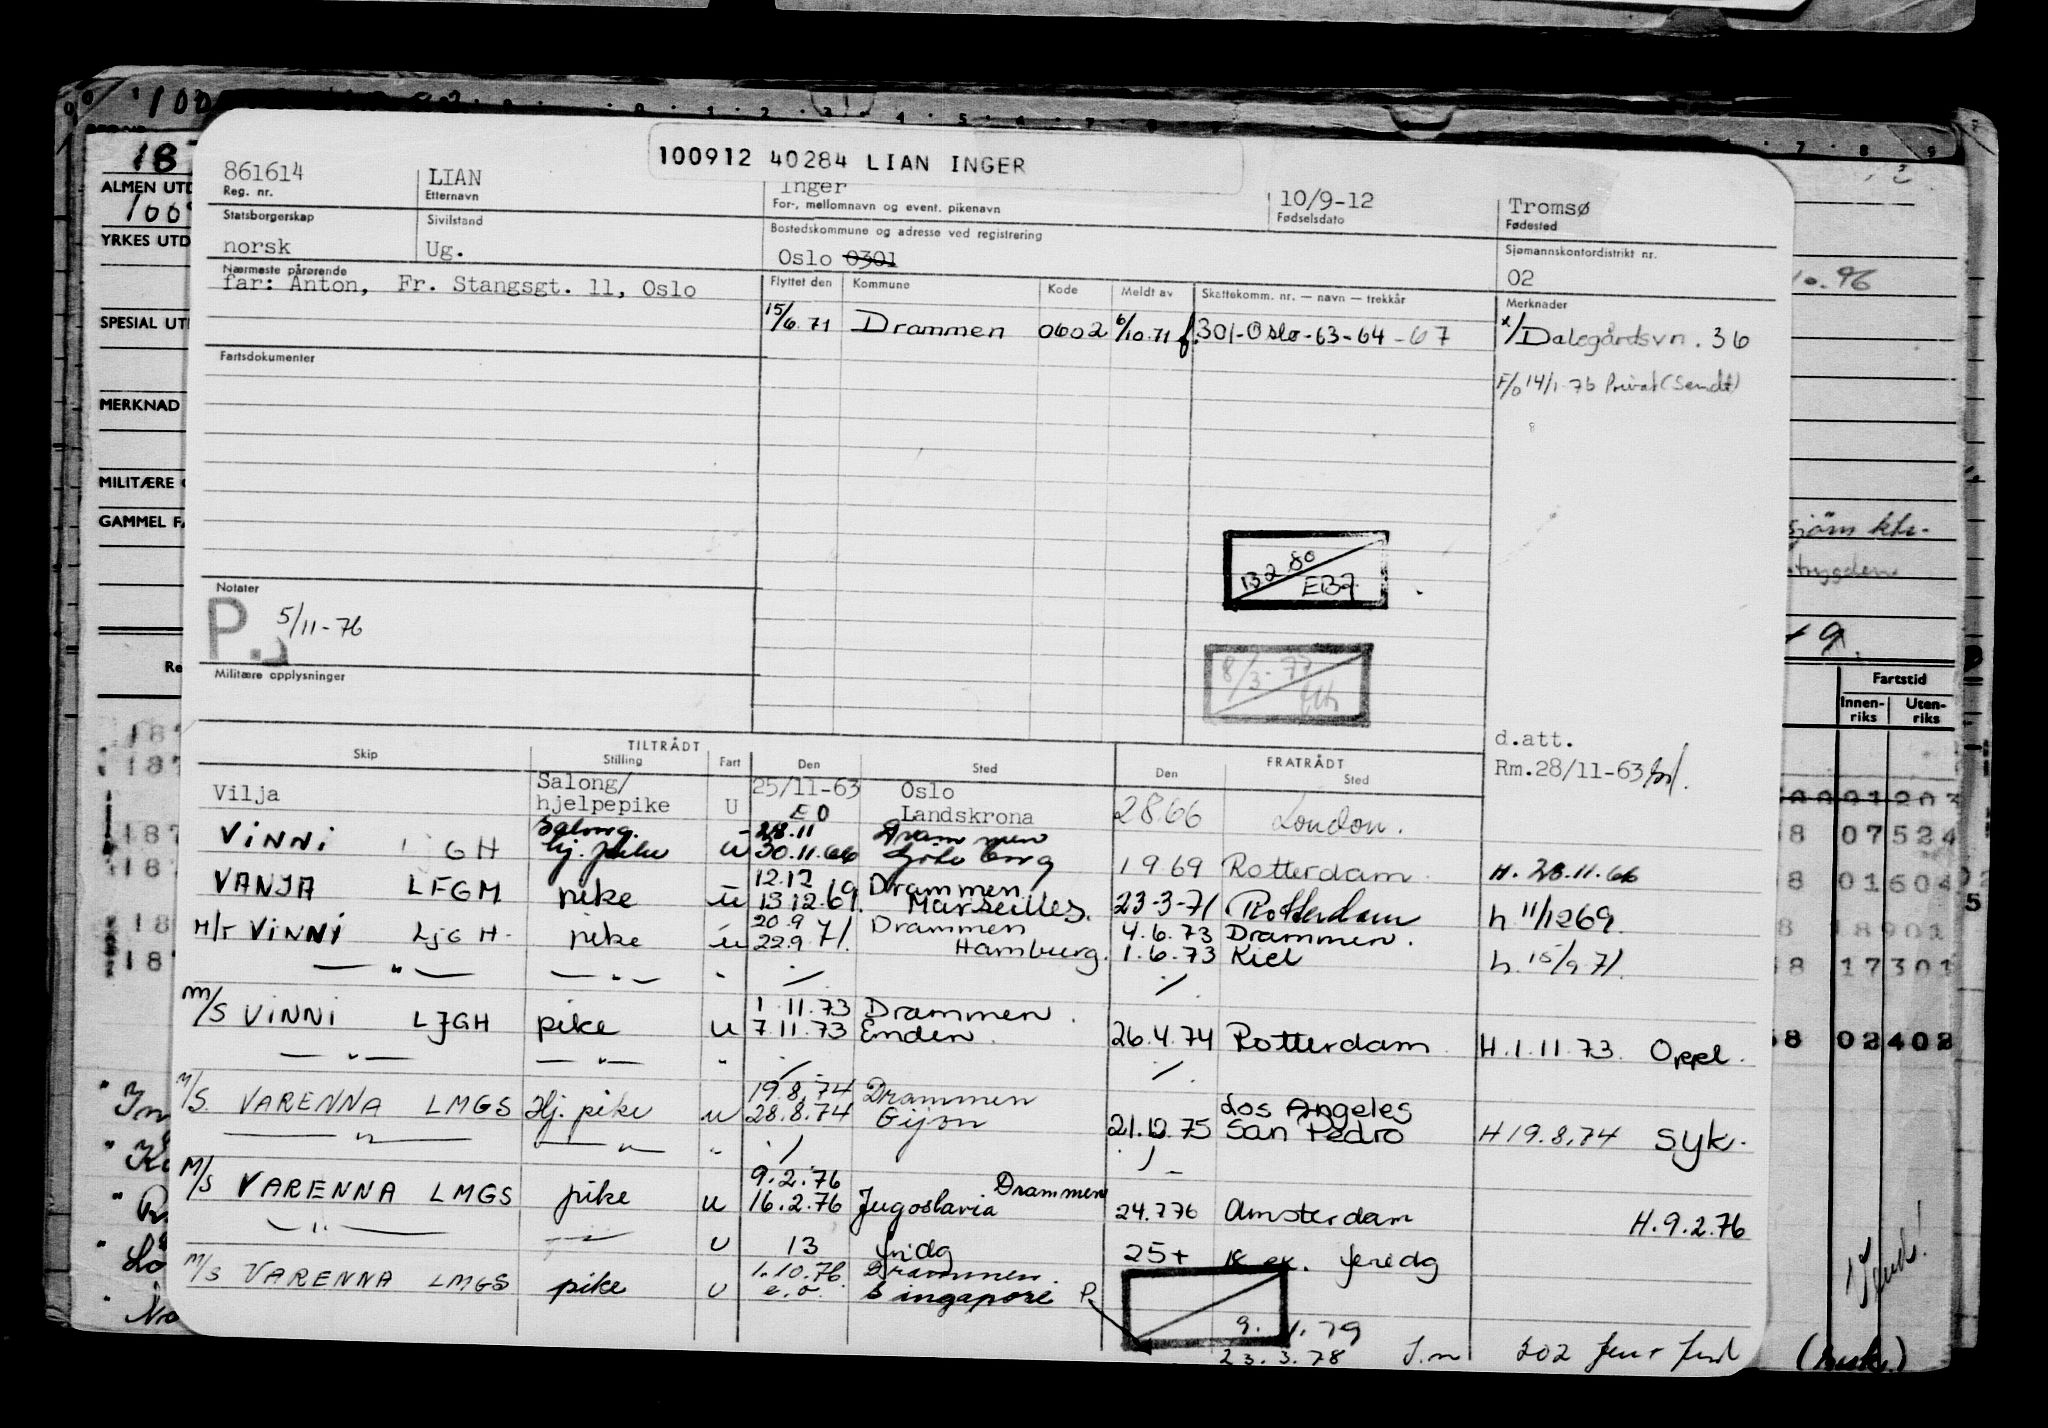 100912 40284 LIAN INGER
861614 LIAN Inger 10/9-12 Tromsø
Reg. nr. Etternavn For-, mellomnavn og event. pikenavn Fødselsdato Fødested
Statsborgerskap Sivilstand Bostedskommune og adresse ved registrering Sjømannskontordistrikt nr.
norsk Ug. Oslo 0301 02
Nærmeste pårørende Flyttet den Kommune Kode Meldt av Skattekomm. nr. — navn — trekkår Merknader
far: Anton, Fr. Stangsgt. 11, Oslo
15/6.71 Drammen 0602 6/10.71 301-Oslo-63-64-67 x/Dalegårdsvn. 36
Fartsdokumenter
F/o 14/1-76 Privat (Sendt)
13.2.80
EB7
Notater
P. 5/11-76
8/3-77
Militære opplysninger
d.att.
Rm.28/11-63
TILTRÅDT FRATRÅDT
Skip Stilling Fart Den Sted Den Sted
Vilja Salong/ hjelpepike U 25/11-63 Oslo
EO Landskrona 28.66 London.
VINNI GH Salong. hj. pike u 28.11 Drammen
30.11.66 Göteborg 1969 Rotterdam. H. 28.11.66
VANJA LFGM pike u 12.12 Drammen
13.12.69. Marseilles. 23-3-71 Rotterdam h 11/1269.
M/T VINNI LJGH. pike u 20.9 71. Drammen 4.6.73 Drammen.
22.9 Hamburg. 1.6.73 Kiel h. 15/9 71.
— " — — " — "
m/s VINNI LJGH pike u 1.11.73 Drammen.
7.11.73 Emden. 26.4.74 Rotterdam H.1.11.73. Oppl.
— " — — " — "
M/S. VARENNA LMGS Hj. pike u 19.8.74 Drammen Los Angeles
28.8.74 Gijon 21.12.75 San Pedro H 19.8.74 syk.
— " — — " — "
M/S VARENNA LMGS pike u 9.2.76 Drammen
16.2.76 Jugoslavia 24.7.76 Amsterdam H.9.2.76
— " — u 13 fridg 25+ feredg
M/S VARENNA LMGS pike u 1.10.76. Drammen.
e.o. Singapore P.
9.1.79
23.3.78 202
ALMEN UTD
YRKES UTD
SPESIAL UT
MERKNAD
MILITÆRE
GAMMEL FA
10.96
sjöm ktr.
trygden
Fartstid
Innen-riks Uten-riks
07524
01604
18901
17301
02402